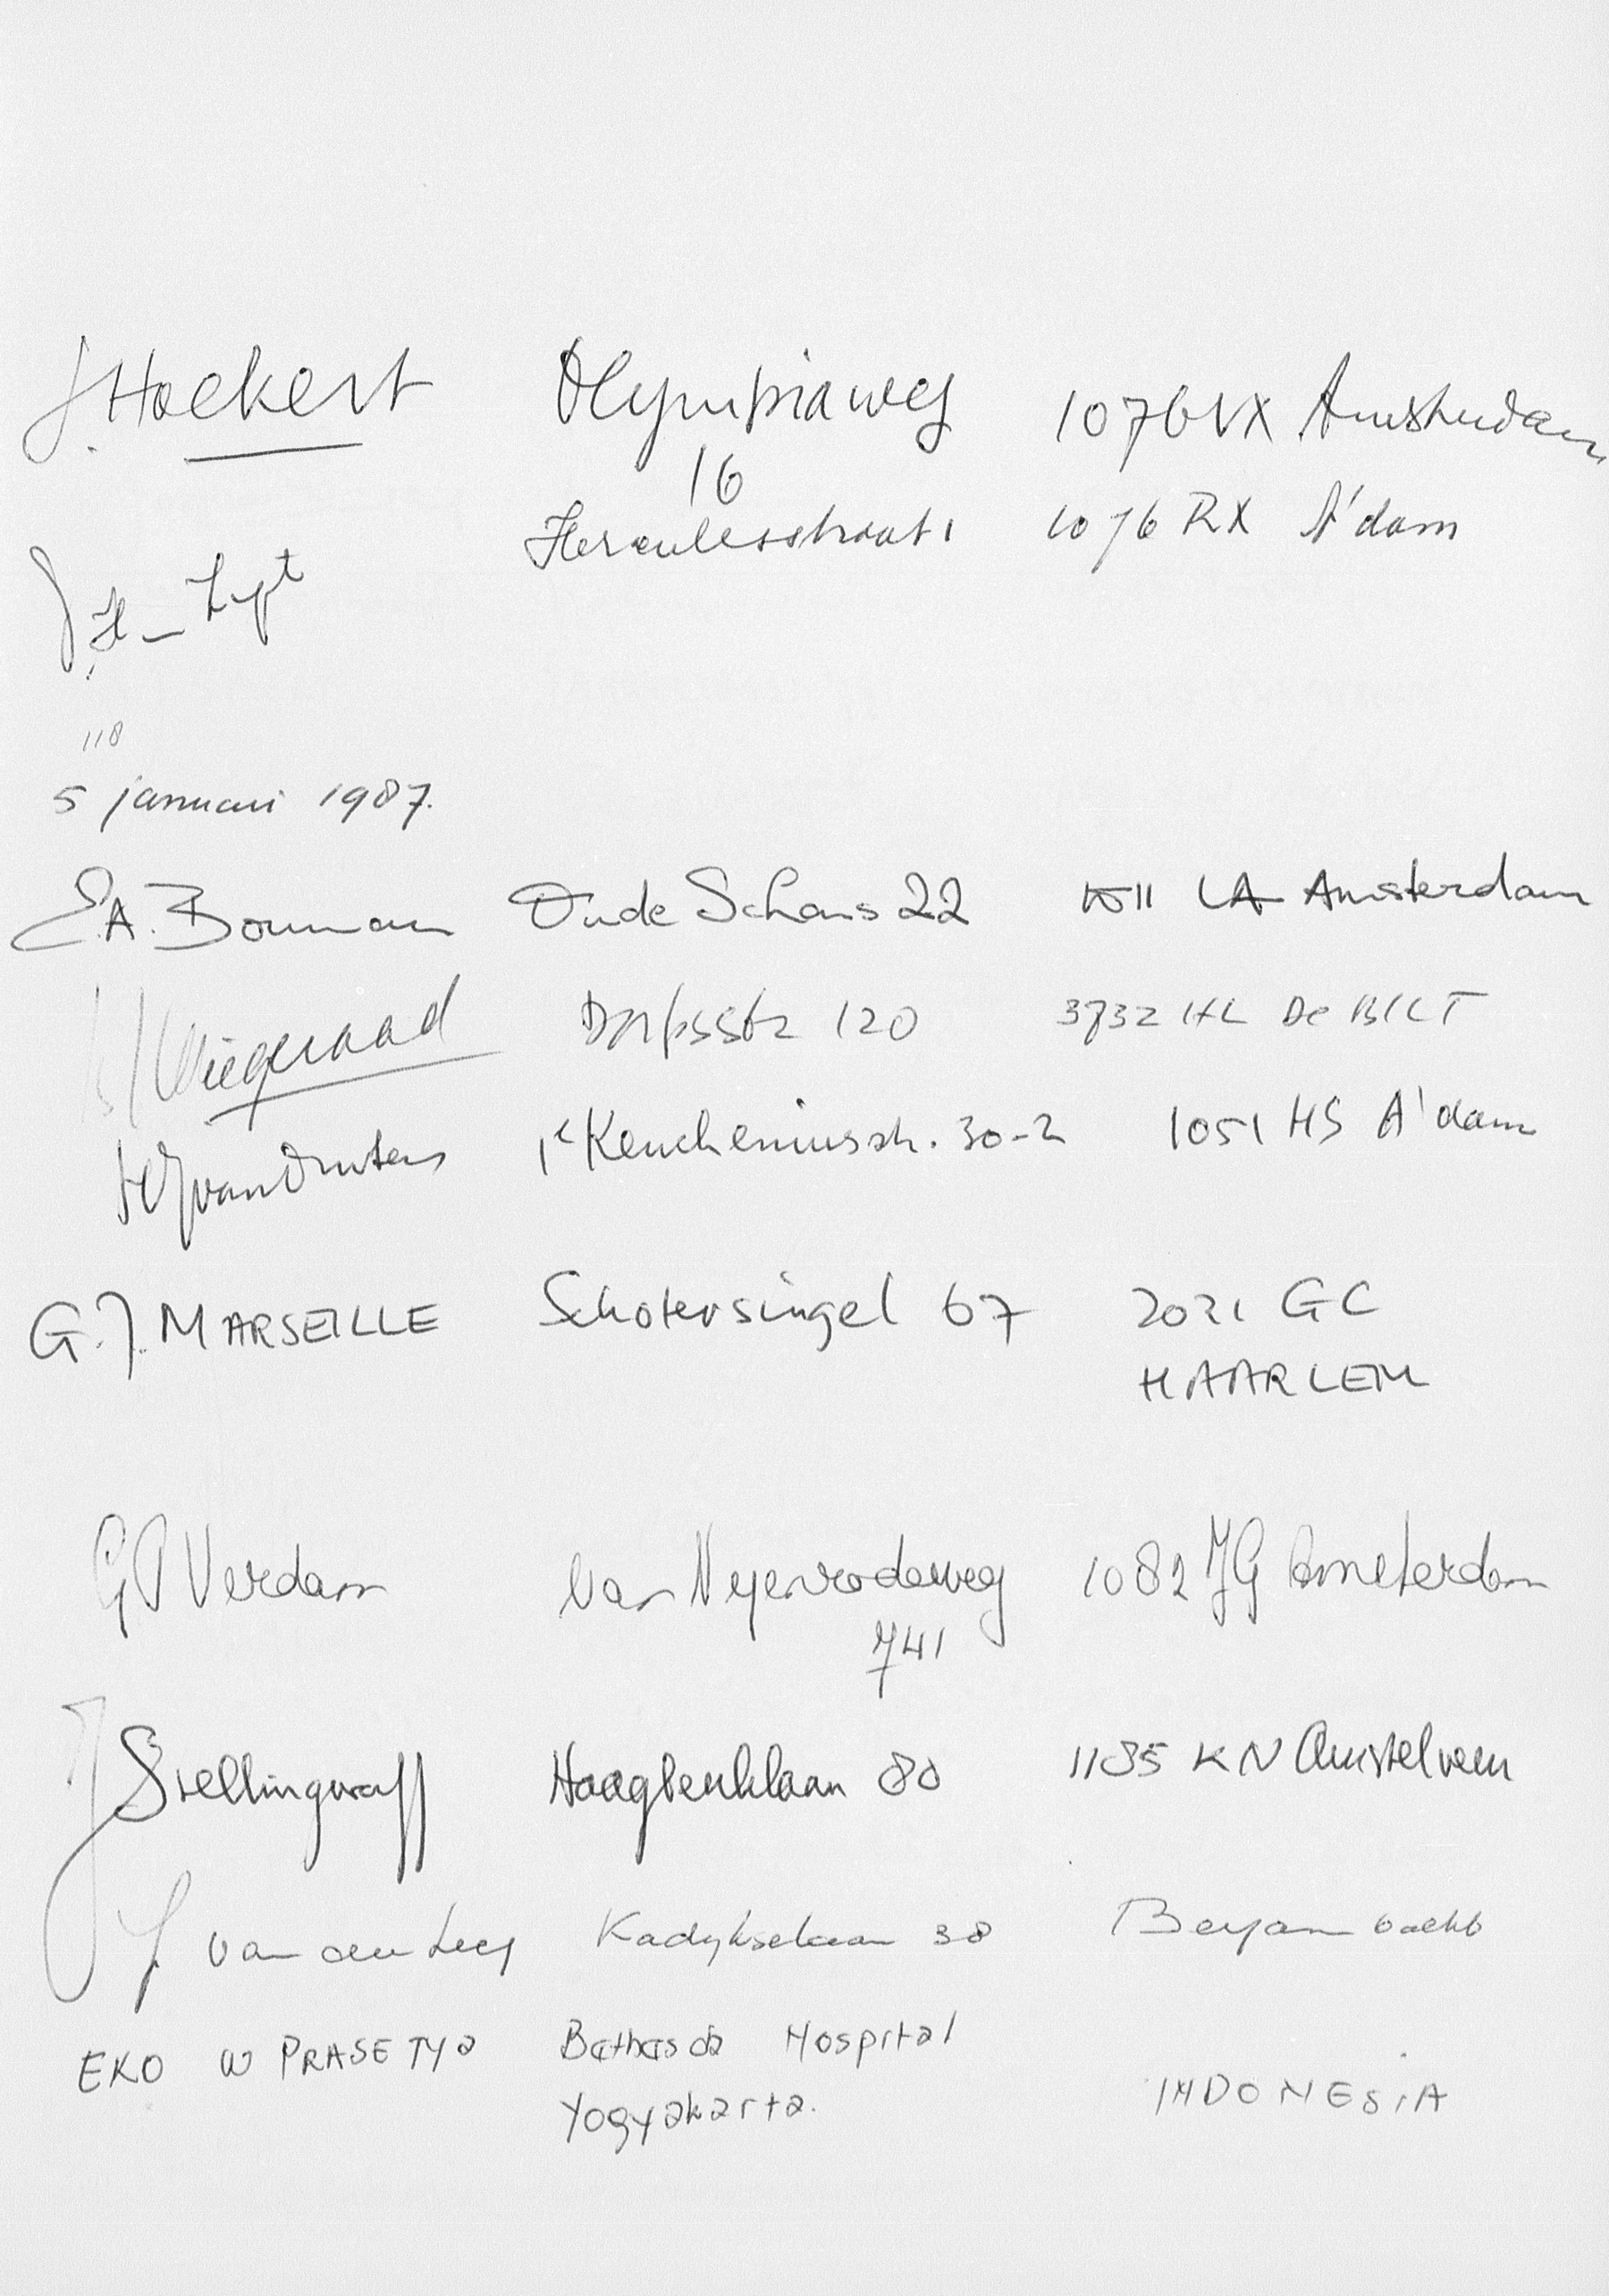 J. Hoekert Olympiaweg 1076 VX Amsterdam
16
Herculesstraat 1 1076 RX A'dam
J.H.
118
5 januari 1987.
E.A. Bouman Oude Schans 22 1011 LA Amsterdam
Wiegeraad Dorpsstr 120 3732 HL De BILT
van Druten 1e Keucheniusstr. 30-2 1051 HS A'dam
G.J. MARSEILLE Schotersingel 67 2021 GC
HAARLEM
GP Verdam Van Nyenrodeweg 1082 JG Amsterdam
741
J Stellingwerff Haagbeuklaan 80 1185 KN Amstelveen
J van der Leey Kadykselaan 38
EKO W PRASETYa Bethesda Hospital
Yogyakarta. INDONESiA